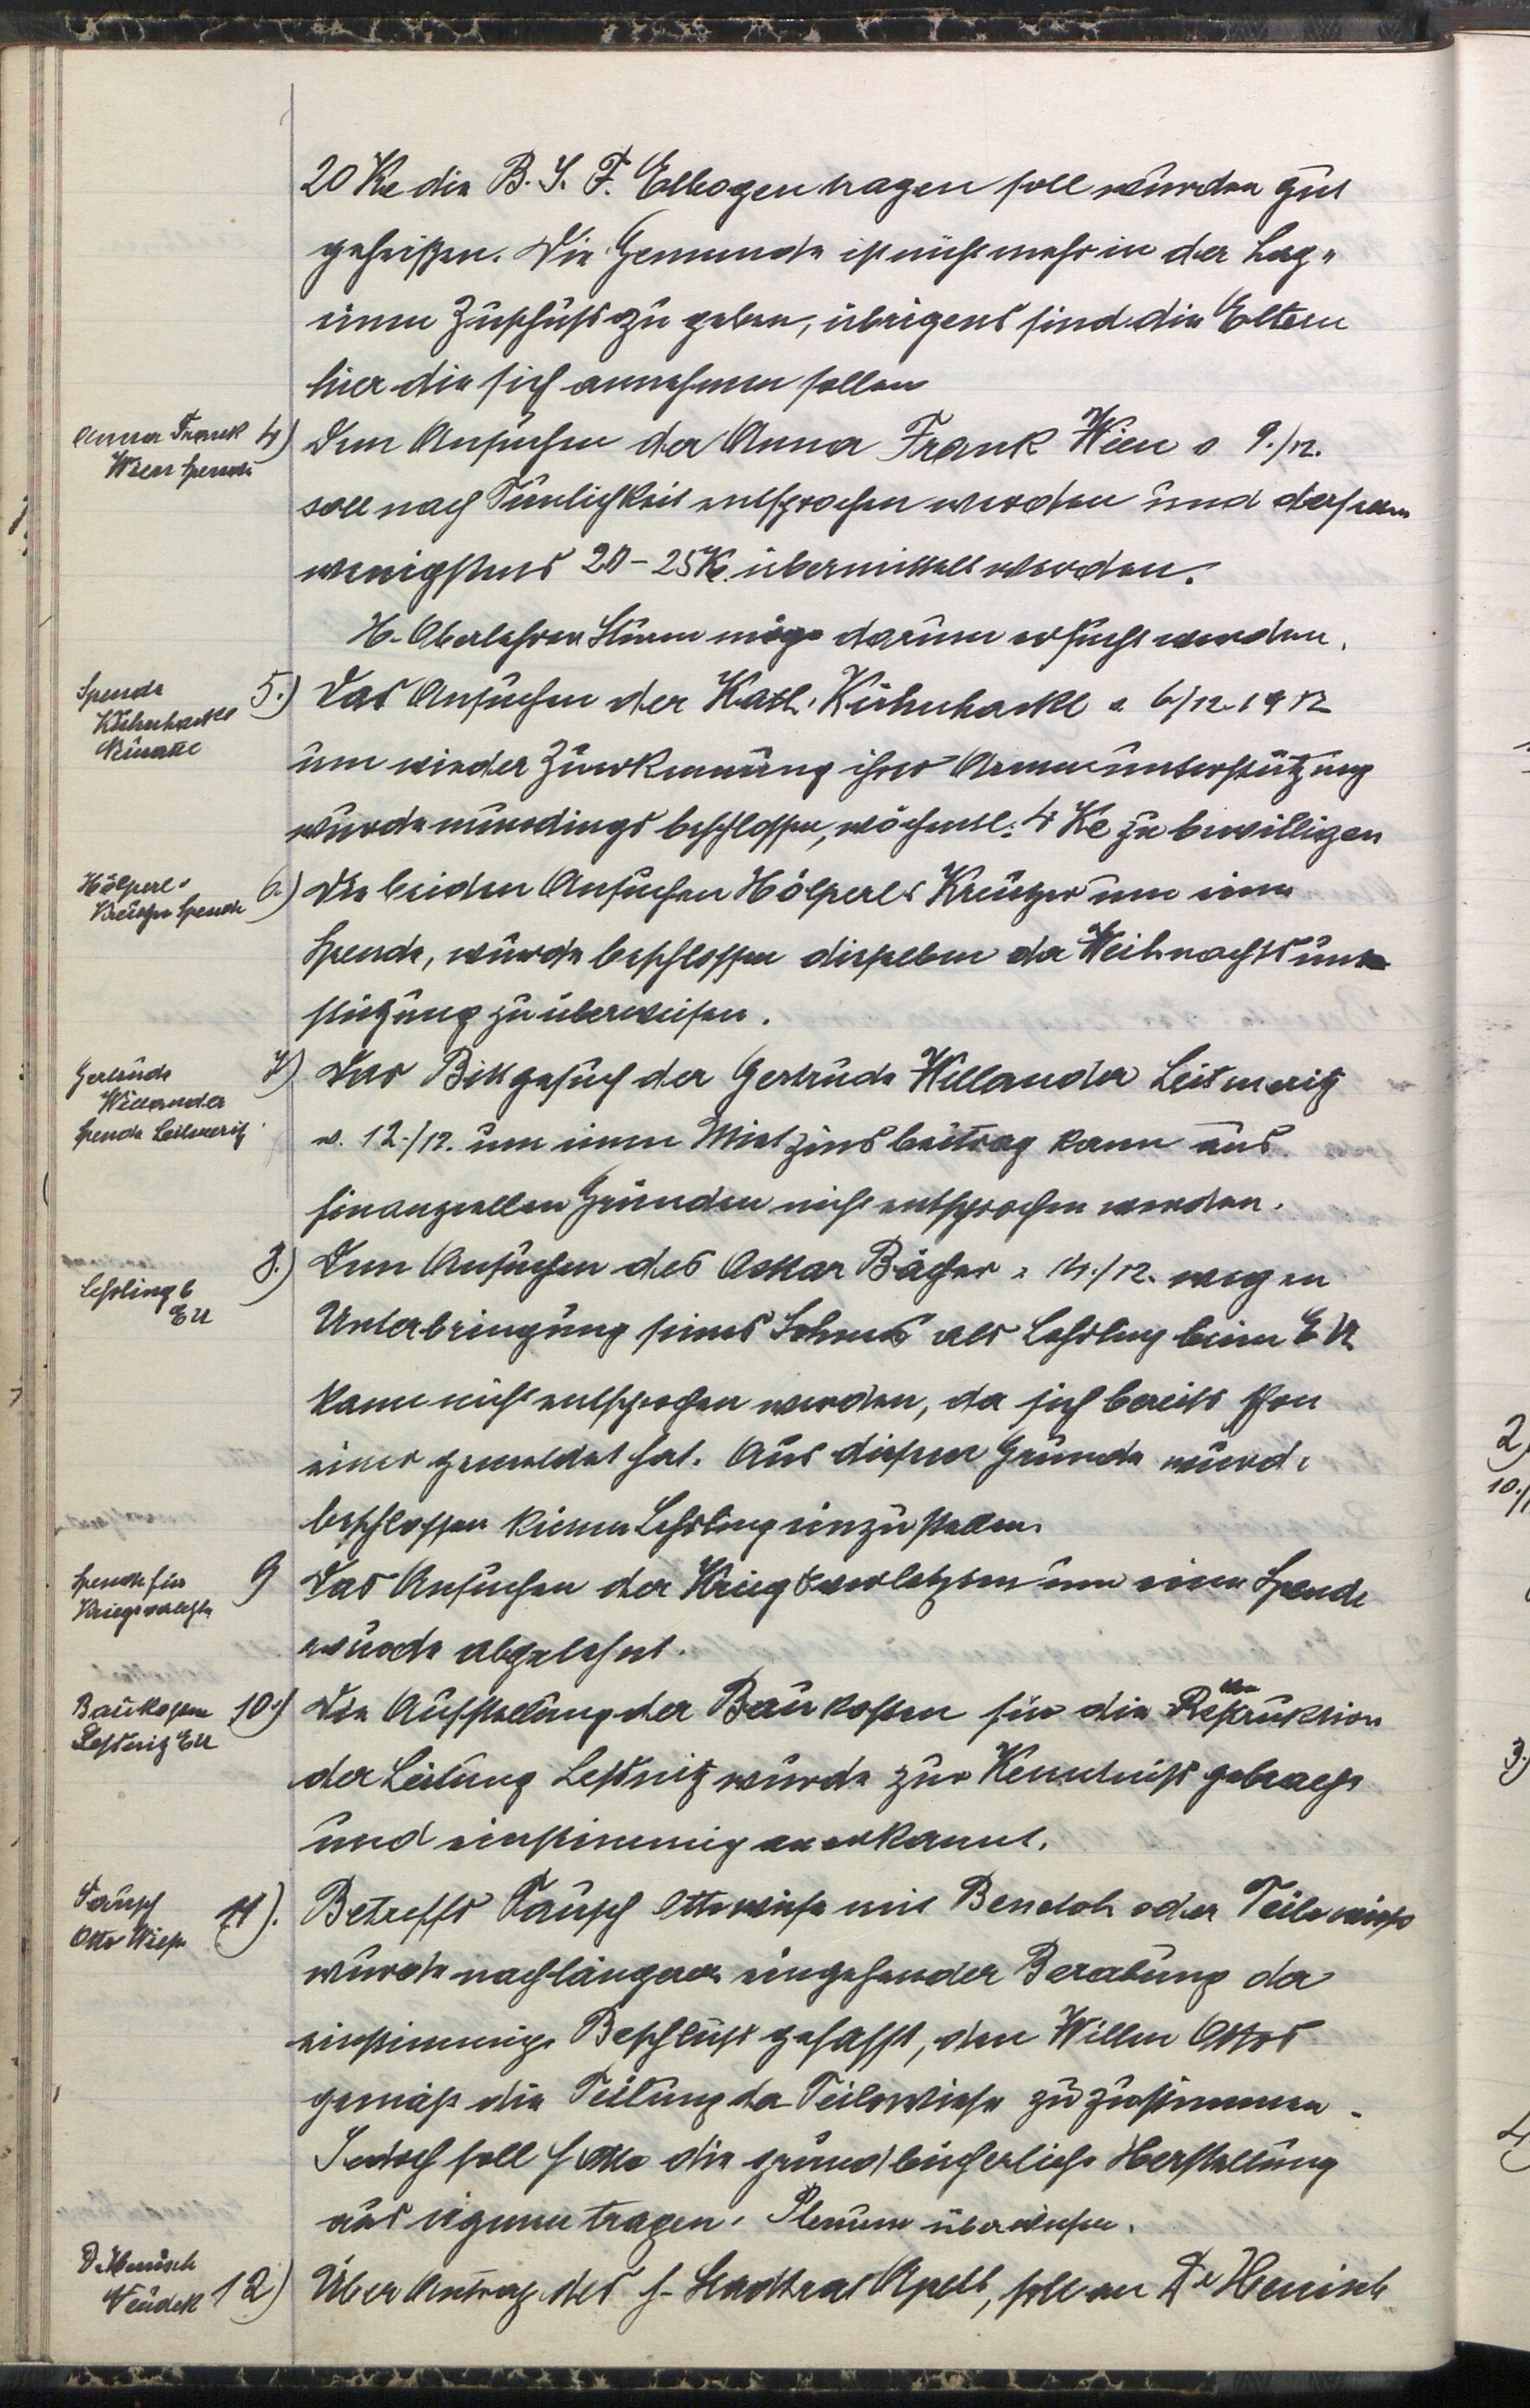 20 Kc die B. J. F. Elbogen tragen soll wurden gut
geheißen. Die Gemeinde ist nicht mehr in der Lage
einen Zuschuß zu geben, übrigens sind die Eltern
hier die sich annehmen sollen
Anna Frank
Wien Spende
4) Dem Ansuchen der Anna Frank Wien v 9./12.
soll nach Tunlichkeit entsprochen werden und derselben
wenigstens 20-25 Kc. übermittelt werden.
H. Oberlehrer Sturm möge darum ersucht werden.
Spende
Kühnhackl
5.) Das Ansuchen der Kath. Kühnhackl v. 6/12. 1932
um wieder Zuerkennung ihrer Armenunterstützung
wurde neuerdings beschlossen, wöchentl. 4 Kc zu bewilligen
Hölperl
Kreuzer Spende
6.) Die beiden Ansuchen Hölperl Kreuzer um eine
Spende, wurde beschlossen dieselben der Weihnachtsunter
stützung zu überweisen.
Gertrude
Willander
Spende Leitmeritz
7) Das Bittgesuch der Gertrude Willander Leitmeritz
v. 12./12. um einen Mietzinsbeitrag kann aus
finanziellen Gründen nicht entsprochen werden.
Lehrling b
EU
8.) Dem Ansuchen des Oskar Bächer v 14./12. wegen
Unterbringung seines Sohnes als Lehrling beim E U
kann nicht entsprochen werden, da sich bereits schon
einer gemeldet hat. Aus diesem Grunde wurde
beschlossen keinen Lehrling einzustellen.
Spende für
Kriegsverletzte
9 Das Ansuchen der Kriegsverletzten um eine Spende
wurde abgelehnt.
Baukosten
Lessnitz EU
10.) Die Aufstellung der Baukosten für die
der Leitung Lessnitz wurde zur Kenntniss gebracht
und einstimmig anerkannt.
Tausch
Otto Wiese
11). Betreffs Tausch Ottowiese mit Bendoh oder Teilewiese
wurde nach längerer eingehender Beratung der
einstimmige Beschluß gefasst, den Willen Ottos
gemäß die Teilung der Teilewiese zuzustimmen.
Jedoch soll H Otto die grundbücherliche Herstellung
aus eigenem tragen. Plenum überwiesen.
D. Henisch
Neudek
12) Über Antrag des H. Stadtrat Apelt, soll an Dr Henisch